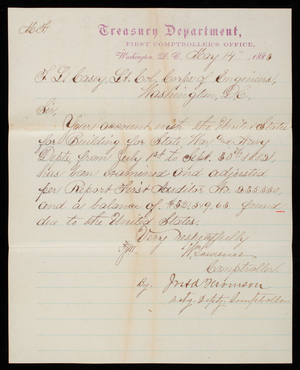 Treasury Department,
FIRST COMPTROLLER'S OFFICE,
Washington, D. C. May 14th, 1883
T. L. Casey, Lt. Col. Corps of Engineers,
Washington, D.C.
Sir,
Your account with the United States
for Building for State, War and Navy
Depts from July 1st to Sept. 30th
has been examined and adjusted
for Report First Auditor No.
and a balance of found
due to the United States.
Very respectfully
Wm Lawrence
Comptroller
By
Actg. Depty. Comptroller